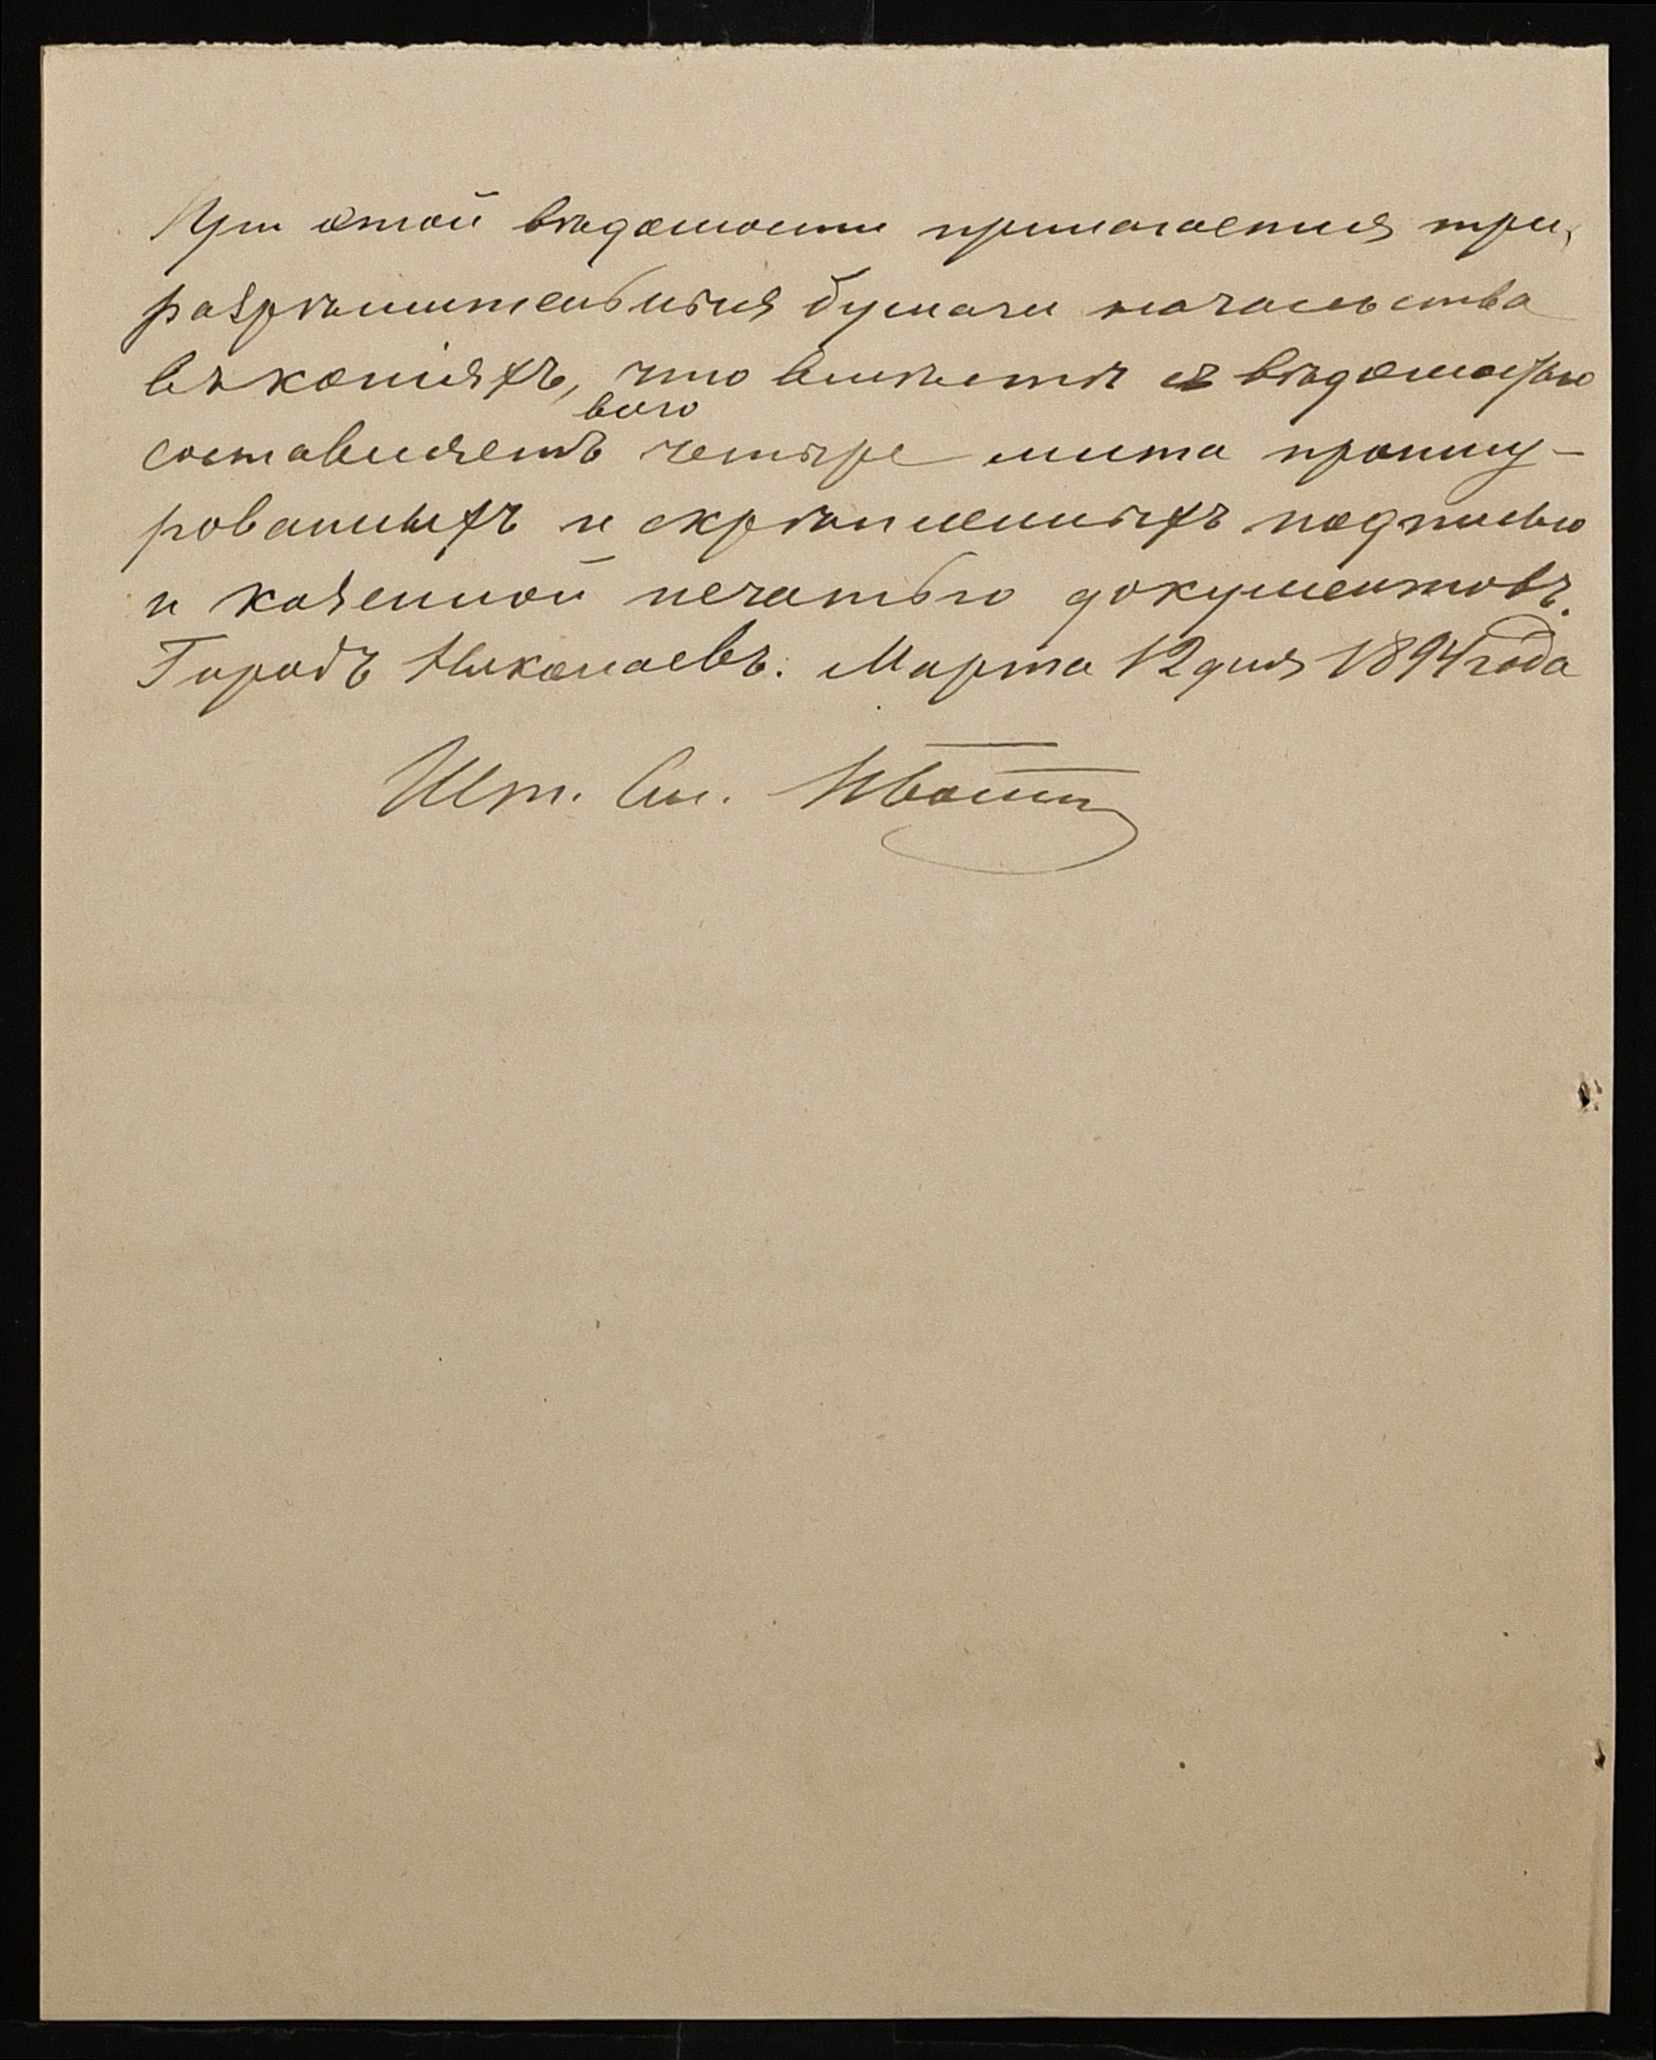 При этой вѣдомости прилагается три
разрѣшительныя бумаги начальства
въ копіяхъ, что вмѣстѣ съ вѣдомостью
всего
составляетъ четыре листа прошну-
рованныхъ и скрѣпленныхъ подписью
и казенной печатью документовъ.
Городъ Николаевъ. Марта 12 дня 1894 года
Шт.